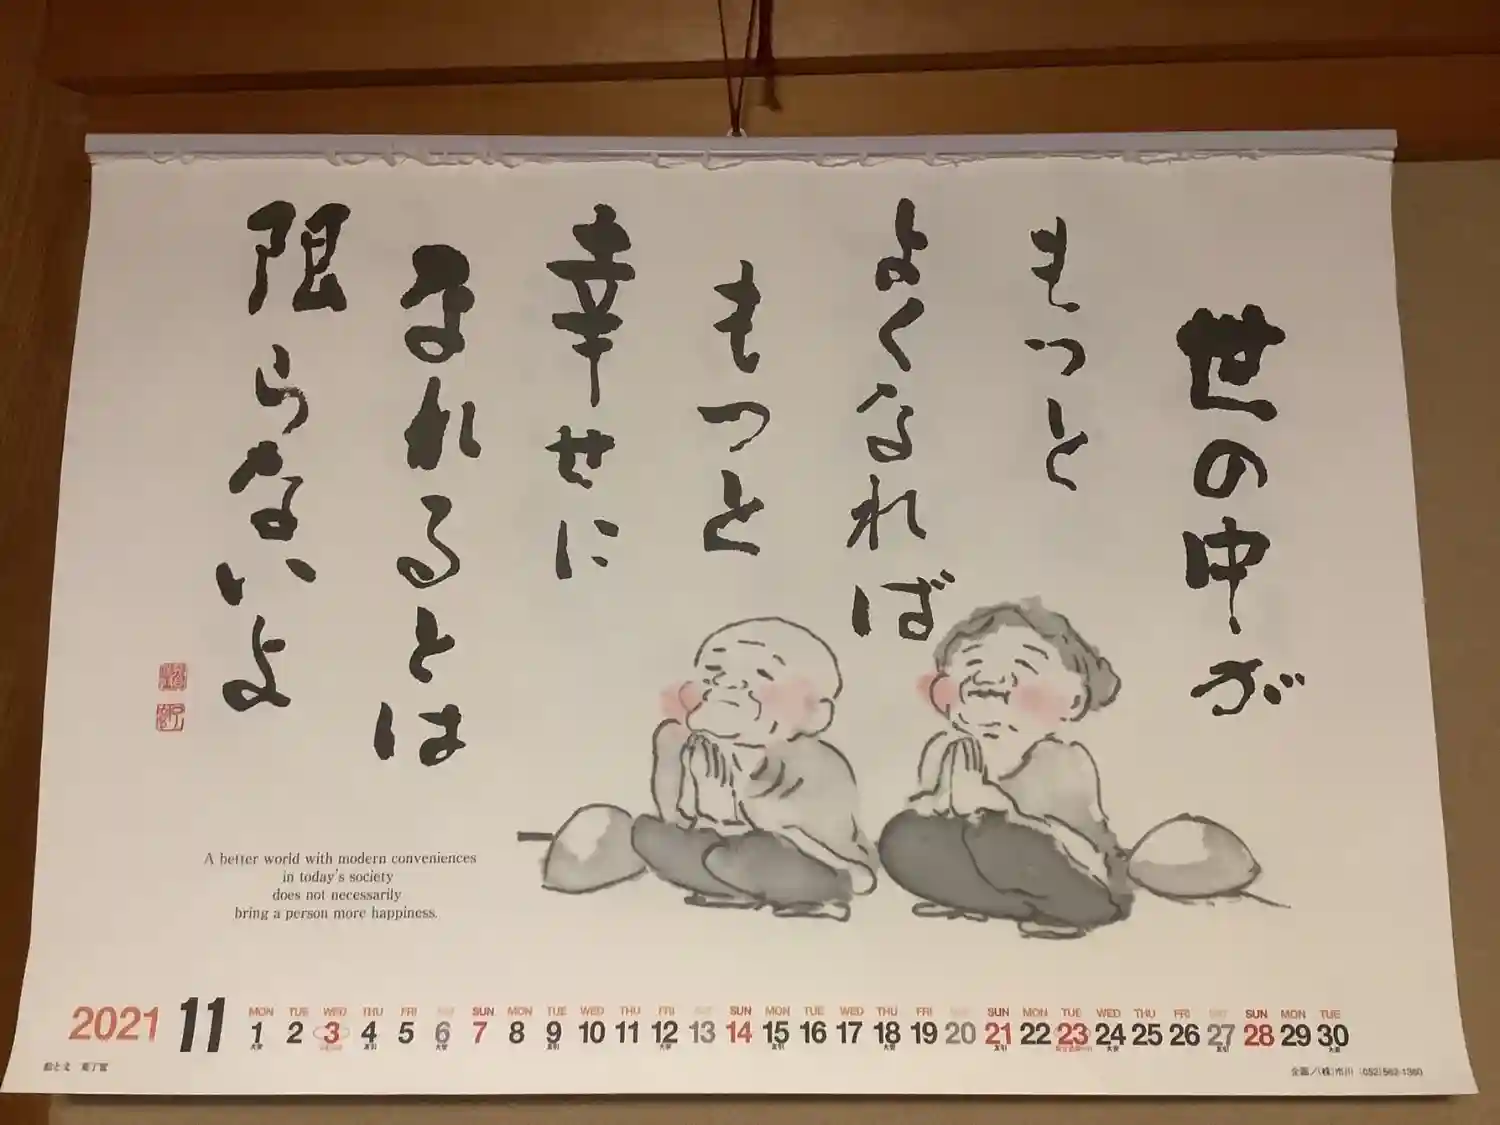 世の中が
もっと
よくなれば
もっと
幸せに
なれるとは
限らないよ
A better world with modern conveniences
in today's society
does not necessarily
bring a person more happiness.
2021 11
MON TUE WED THU FRI SAT SUN MON TUE WED THU FRI SAT SUN MON TUE WED THU FRI SAT SUN MON TUE WED THU FRI SAT SUN MON TUE
1 2 3 4 5 6 7 8 9 10 11 12 13 14 15 16 17 18 19 20 21 22 23 24 25 26 27 28 29 30
大安 友引 大安 友引 大安 友引 大安 友引 大安 友引 大安
絵と文
企画／(株)市川 (052)562-1360